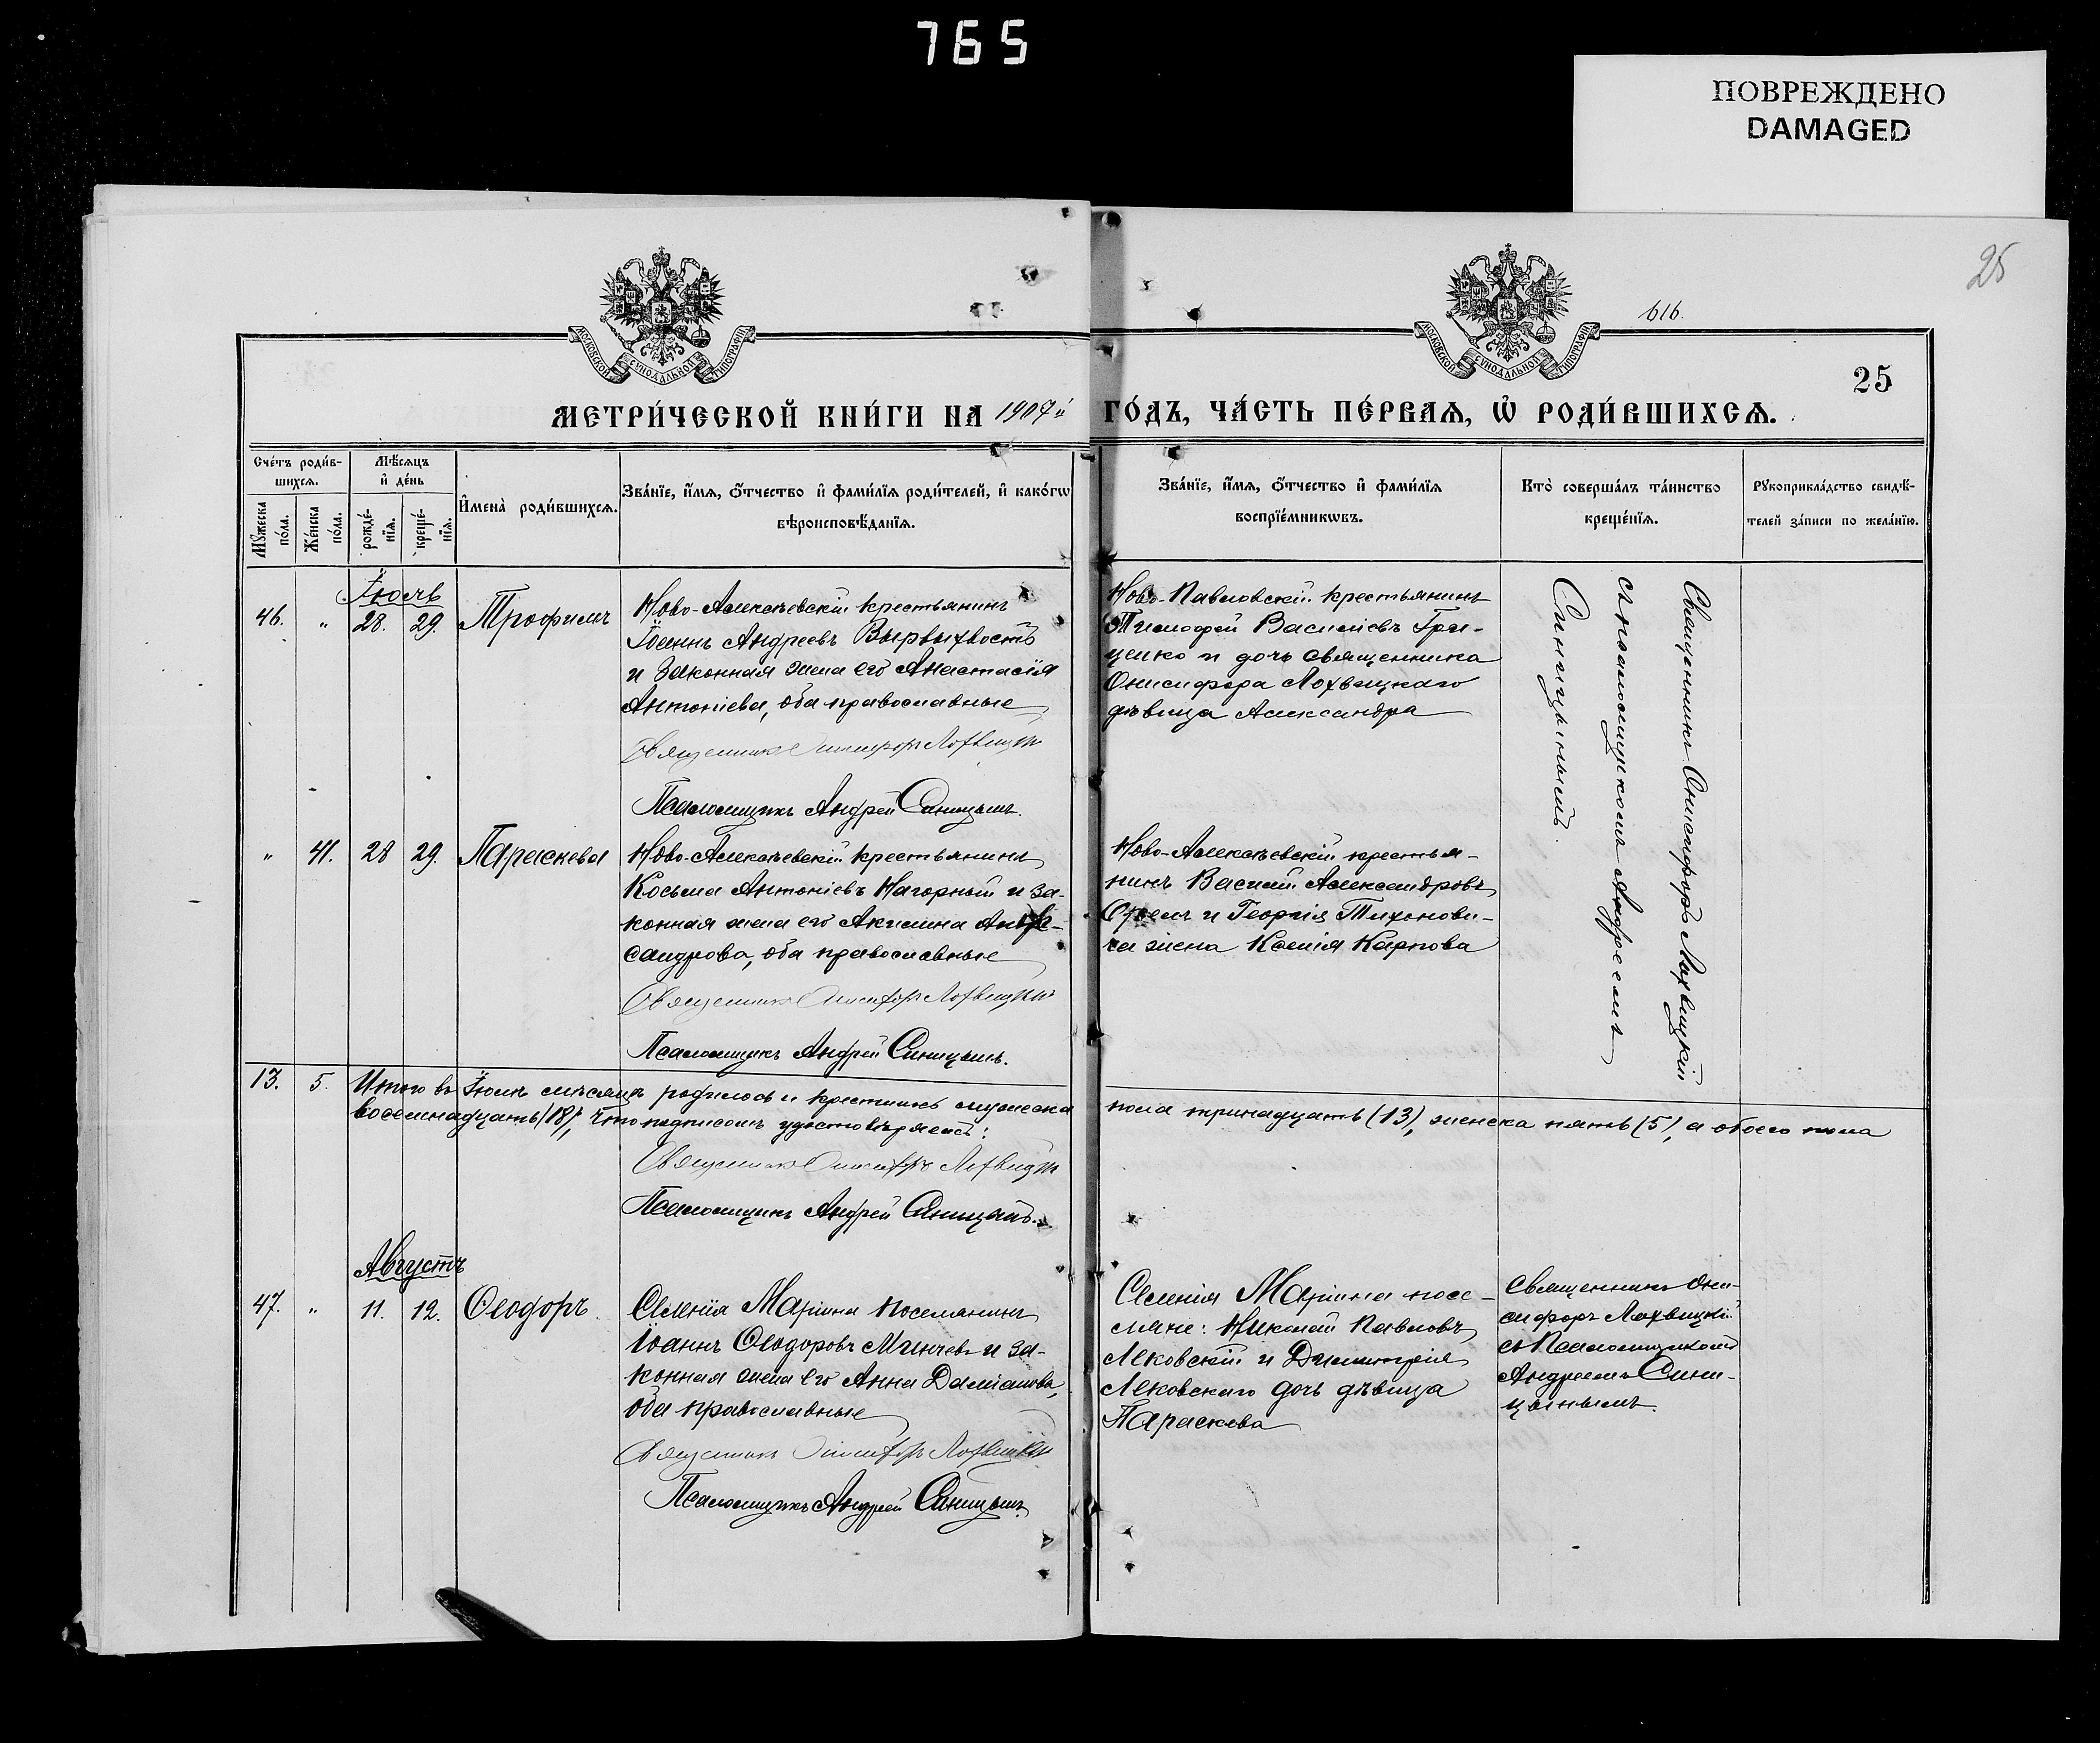 765
ПОВРЕЖДЕНО
DAMAGED
25
616.
25
МЕТРИ́ЧЕСКОЙ КНИ́ГИ НА 1907й ГО́ДЪ, ЧА́СТЬ ПЕ́РВАѦ, Ѡ҆ РОДИ́ВШИХСѦ.
МОСКОВСКОЙ СѴНОДАЛЬНОЙ ТИПОГРАФІИ
МОСКОВСКОЙ СѴНОДАЛЬНОЙ ТИПОГРАФІИ
Сче́тъ роди́в-
шихсѧ.
Мꙋ́жеска по́ла.
Же́нска по́ла.
Мѣ́сѧцъ
и҆ де́нь
рожде́-
нїѧ.
креще́-
нїѧ.
И҆мена̀ роди́вшихсѧ.
Зва́нїе, и҆́мѧ, ѻ҆́тчество и҆ фами́лїѧ роди́телей, и҆ како́гѡ
вѣроисповѣ́данїѧ.
Зва́нїе, и҆́мѧ, ѻ҆́тчество и҆ фами́лїѧ
воспрїе́мникѡвъ.
Кто̀ соверша́лъ та́инство
креще́нїѧ.
Рꙋкоприкла́дство свидѣ́-
телей за́писи по жела́нїю.
Іюль
46. " 28. 29. Трофимъ
Ново-Алексѣевскій крестьянинъ
Іоаннъ Андреевъ Вырвихвостъ
и законная жена его Анастасія
Антоніева, оба православные
Священникъ Онисифоръ Лохвицкій
Псаломщикъ Андрей Синицынъ.
Ново-Павловскій крестьянинъ
Тимофей Василіевъ Гри-
ценко и дочь священника
Онисифора Лохвицкаго
дѣвица Александра
Священникъ Онисифоръ Лохвицкій
съ псаломщикомъ Андреемъ
Синицынымъ.
" 41. 28 29. Параскева
Ново-Алексѣевскій крестьянинъ
Косьма Антоніевъ Нагорный и за-
конная жена его Акилина Алек-
сандрова, оба православные
Священникъ Онисифоръ Лохвицкій
Псаломщикъ Андрей Синицынъ.
Ново-Алексѣевскій крестья-
нинъ Василій Александровъ
и Георгія Тихонови-
ча жена Ксенія Карпова
13. 5. Итого въ Іюлѣ мѣсяцѣ родилось и крестилось мужеска пола тринадцать (13), женска пять (5), а обоего пола
восемнадцать (18), что подписомъ удостовѣряемъ:
Священникъ Онисифоръ Лохвицкій
Псаломщикъ Андрей Синицынъ.
Августъ
47. " 11. 12. Ѳеодоръ.
Селенія Маріина поселянинъ
Іоаннъ Ѳеодоровъ Минчевъ и за-
конная жена его Анна Даміанова,
оба православные
Священникъ Онисифоръ Лохвицкій
Псаломщикъ Андрей Синицынъ.
Селенія Маріина посе-
ляне: Николай Павловъ
Лековскій и Димитрія
Лековскаго дочь дѣвица
Параскева
Священникъ Они-
сифоръ Лохвицкій
съ Псаломщикомъ
Андреемъ Сини-
цынымъ.